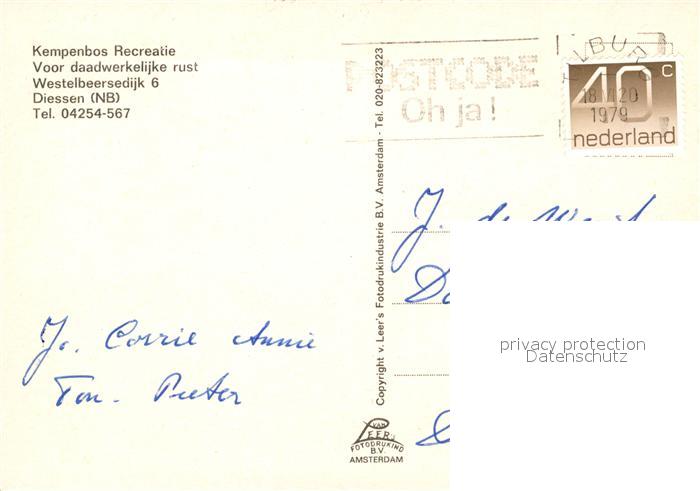 Kempenbos Recreatie
Voor daadwerkelijke rust
Westelbeersedijk 6
Diessen (NB)
Tel. 04254-567
POSTCODE
Oh ja!
TILBURG
18 VI 20
1979
40 c
nederland
Copyright v. Leer's Fotodrukindustrie B.V. Amsterdam - Tel. 020-823223
J. de
privacy protection
Datenschutz
Jo. Corrie Annie
Ton. Pieter
VAN
LEER's
FOTODRUKIND
B.V.
AMSTERDAM